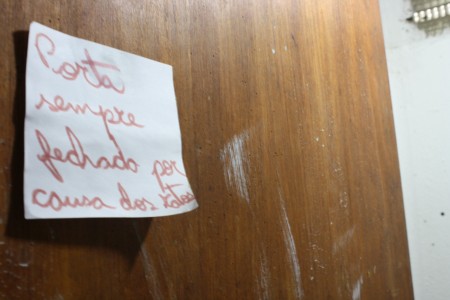 Porta
sempre
fechado por
causa dos ratos